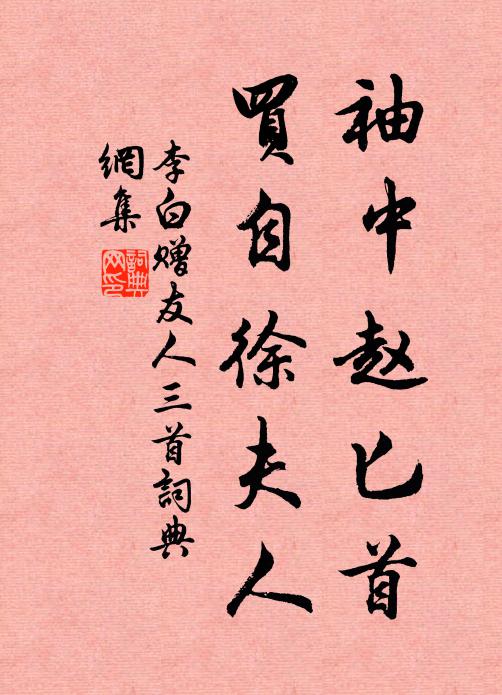 袖中赵匕首
買自徐夫人
李白赠友人三首詞典
網集
詞典网印